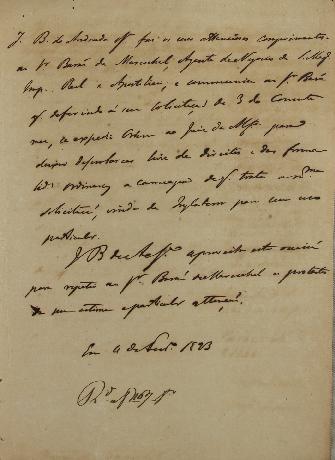 J. B. de Andrada faz os seus attenciosos comprimentos
ao Sr. Barão de Mareschal Agente de Negocios de S. Mag
Imp. Real e Apostolica, e communica ao Sr. Barão
q deferindo á sua solicitação de 3 do corrente
mez, se expedio Ordem ao Juiz da Alfª. para
deixar desembarcar livre de direitos e das forma
ordinarias a carruagem de q trata a mma
vinda de Inglaterra para seu uso
particular.
J B de And. aproveita esta occasião
para repetir ao Sr. Barão de Mareschal os protestos
de sua estima e particular attenção.
Em 4 de 1823